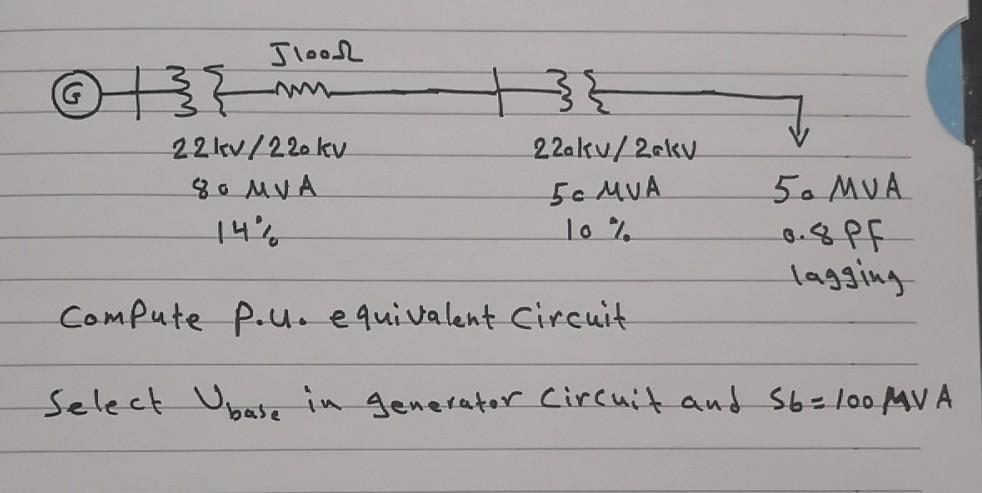 J100Ω
G
22kV/220kV 220kV/20kV
80 MVA 50 MVA 50 MVA
14% 10% 0.8 PF
lagging
Compute P.U. equivalent Circuit
Select Ubase in generator Circuit and Sb=100MVA